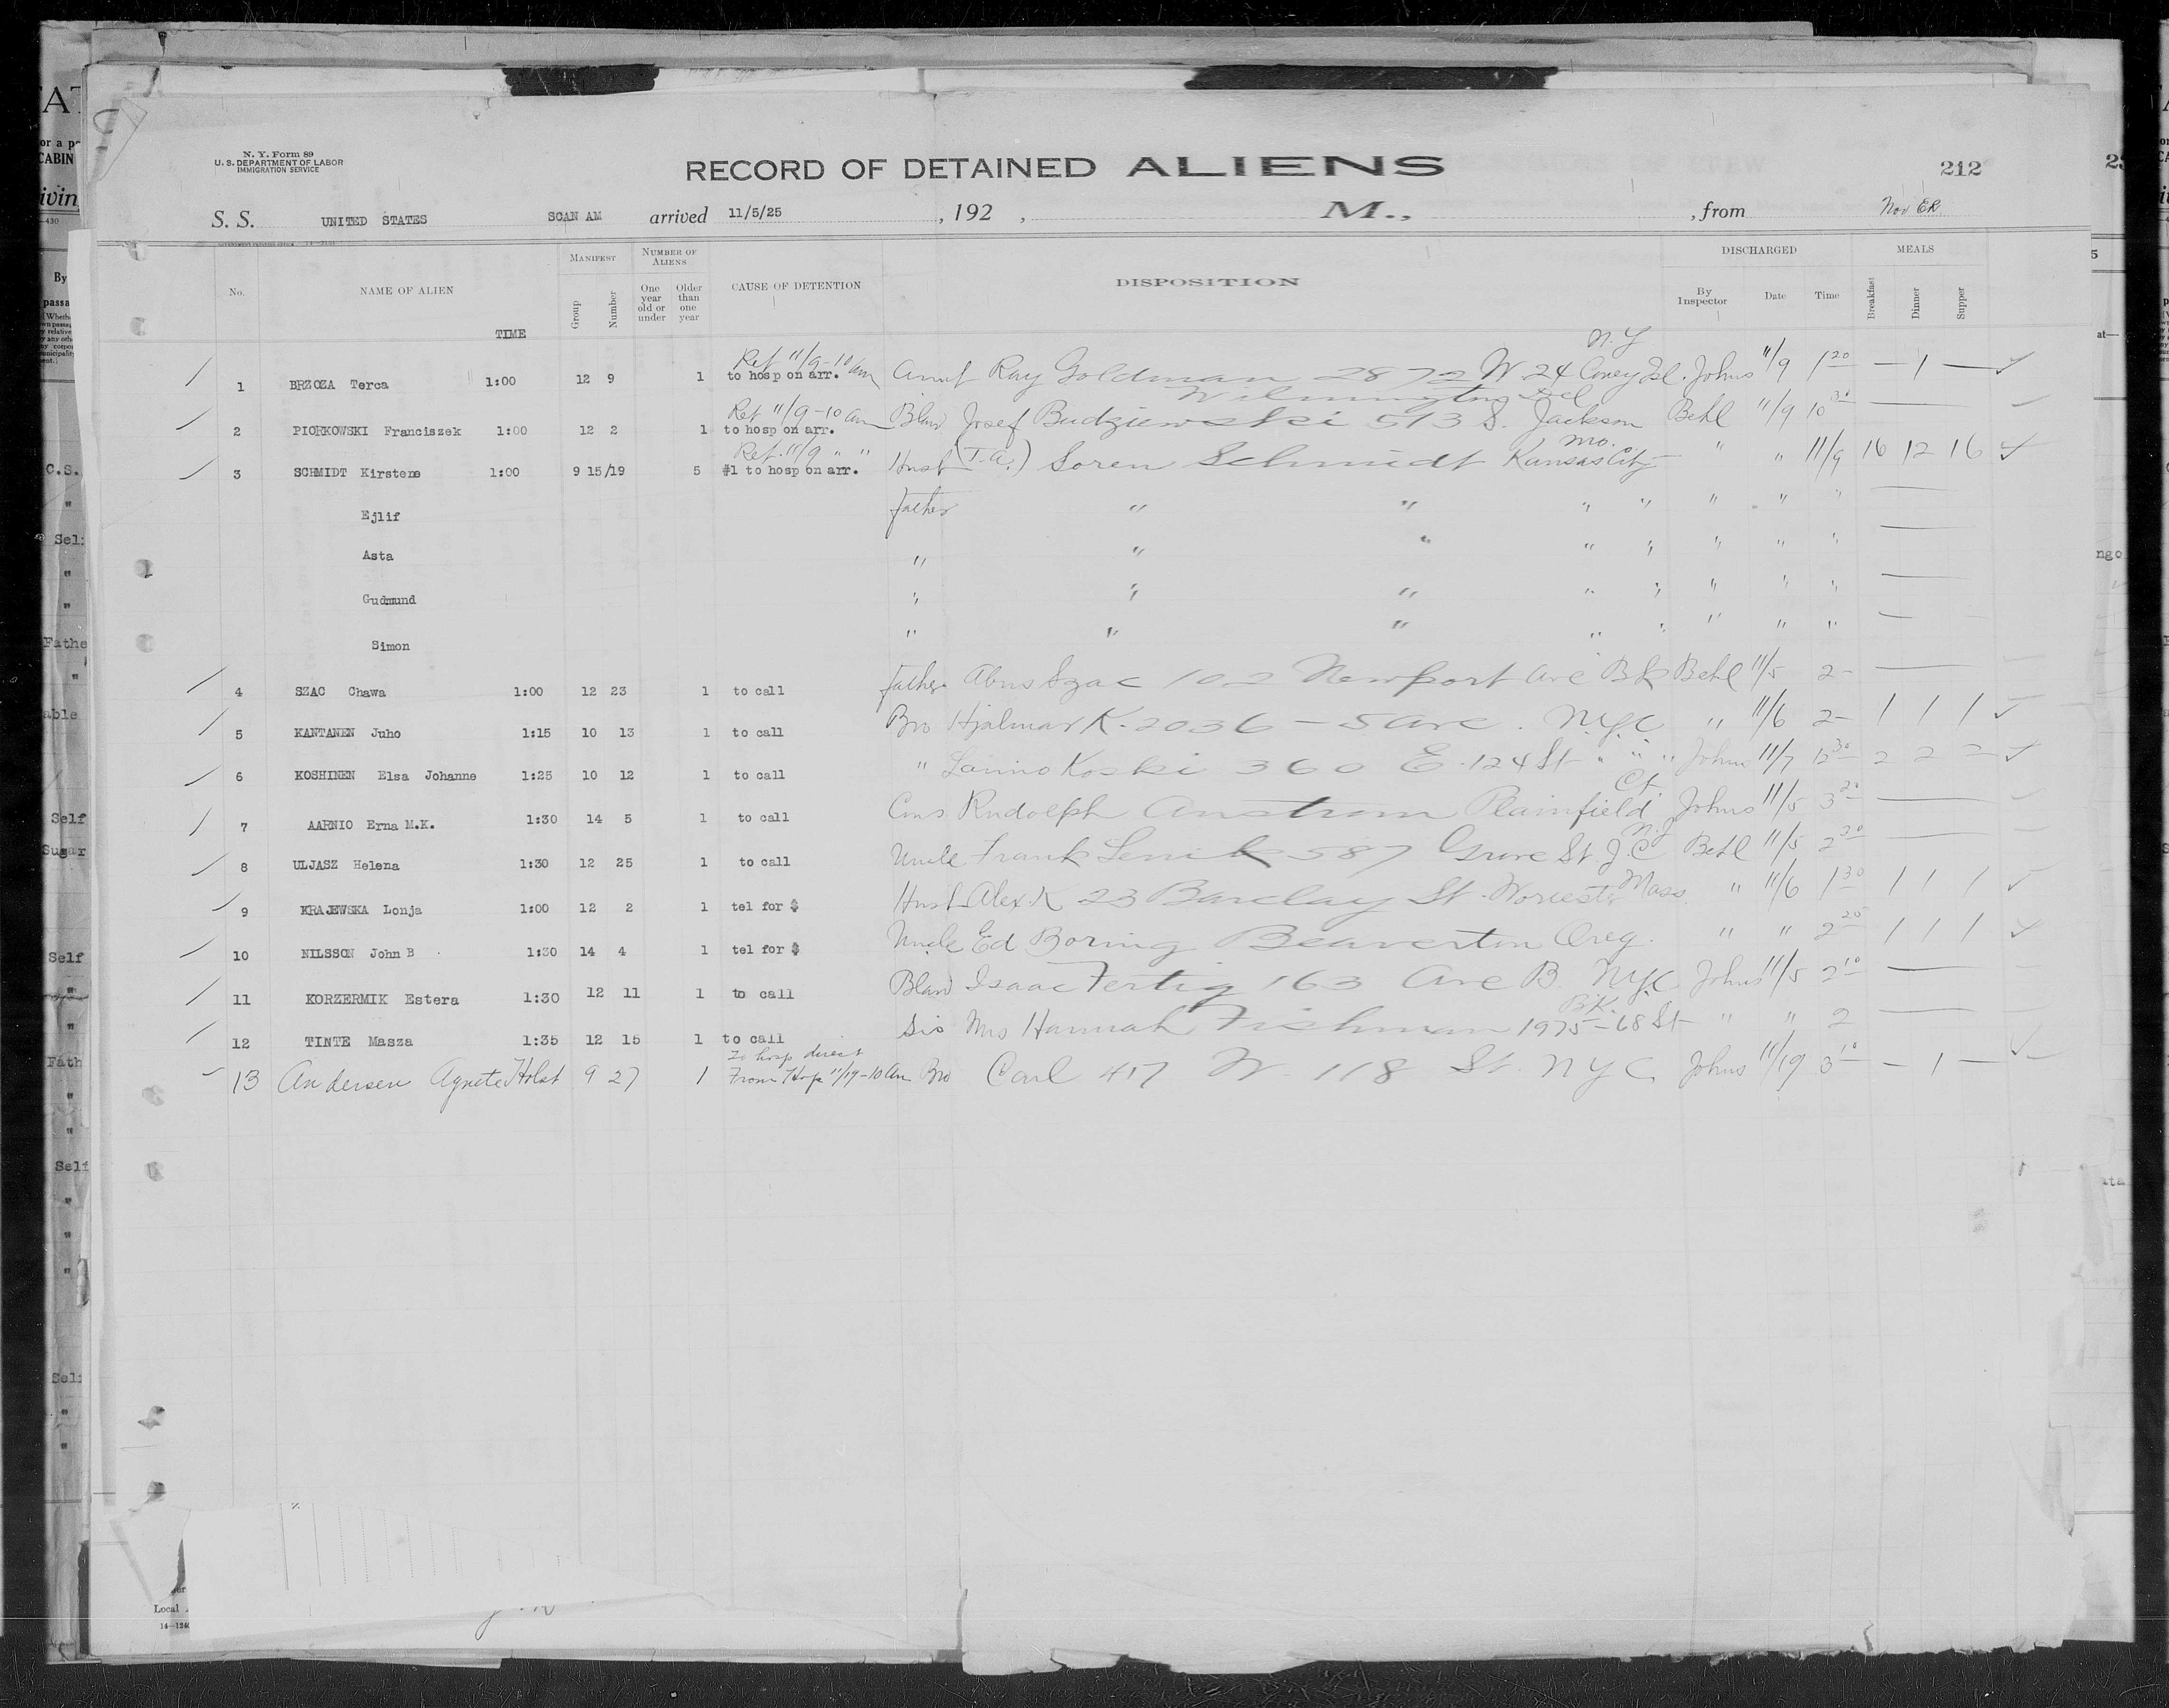 N. Y. Form 89
U. S. DEPARTMENT OF LABOR
IMMIGRATION SERVICE
RECORD OF DETAINED ALIENS
212
S. S. UNITED STATES SCAN AM arrived 11/5/25 , 192 , M., , from Nov ER
No. NAME OF ALIEN TIME MANIFEST Group Number NUMBER OF ALIENS One year old or under Older than one year CAUSE OF DETENTION DISPOSITION DISCHARGED By Inspector Date Time MEALS Breakfast Dinner Supper
Ret 11/9-10 am N.Y
1 BRZOZA Terca 1:00 12 9 1 to hosp on arr. Aunt Ray Goldman 2872 W 24 Coney Isl. Johns 11/9 1 20 — 1 —
Ret 11/9-10 am Wilmington Del
2 PIORKOWSKI Franciszek 1:00 12 2 1 to hosp on arr. Blaw Josef Budziewski 513 S. Jackson Behl 11/9 10 30 —
Ret. 11/9 " " Mo.
3 SCHMIDT Kirstene 1:00 9 15/19 5 #1 to hosp on arr. Husb (T.A.) Soren Schmidt Kansas City " " 11/9 16 12 16
Ejlif father " " " " " " " —
Asta " " " " " " " " —
Gudmund " " " " " " " " —
Simon " " " " " " " " —
4 SZAC Chawa 1:00 12 23 1 to call father Szac 102 Newport Ave Bk Behl 11/5 2 — —
5 KANTANEN Juho 1:15 10 13 1 to call Bro Hjalmar K. 2036 – 5 Ave. N.Y.C " 11/6 2 — 1 1 1
6 KOSHINEN Elsa Johanne 1:25 10 12 1 to call " Koski 360 E. 124 St " " " Johns 11/7 12 30 2 2 2
Ct.
7 AARNIO Erna M.K. 1:30 14 5 1 to call Cous Rudolph Plainfield Johns 11/5 3 20 —
N.J
8 ULJASZ Helena 1:30 12 25 1 to call Uncle Frank 587 Grove St J.C Behl 11/5 2 20 —
9 KRAJEWSKA Lonja 1:00 12 2 1 tel for $ Husb Alex K 23 Barclay St. Worcester Mass. " 11/6 1 30 1 1 1
10 NILSSON John B 1:30 14 4 1 tel for $ Uncle Ed Boring Beaverton Oreg. " " 2 25 1 1 1
11 KORZERMIK Estera 1:30 12 11 1 to call Blaw Isaac Fertig 163 Ave B. NYC Johns 11/5 2 10 —
BK.
12 TINTE Masza 1:35 12 15 1 to call Sis Mrs Hannah Fishman 1975 – 68 St " " 2 —
To hosp direct
13 Andersen Agnete Holst 9 27 1 From Hosp 11/19-10 am Bro Carl 417 W. 118 St. N Y C. Johns 11/19 3 10 — 1 —
Local